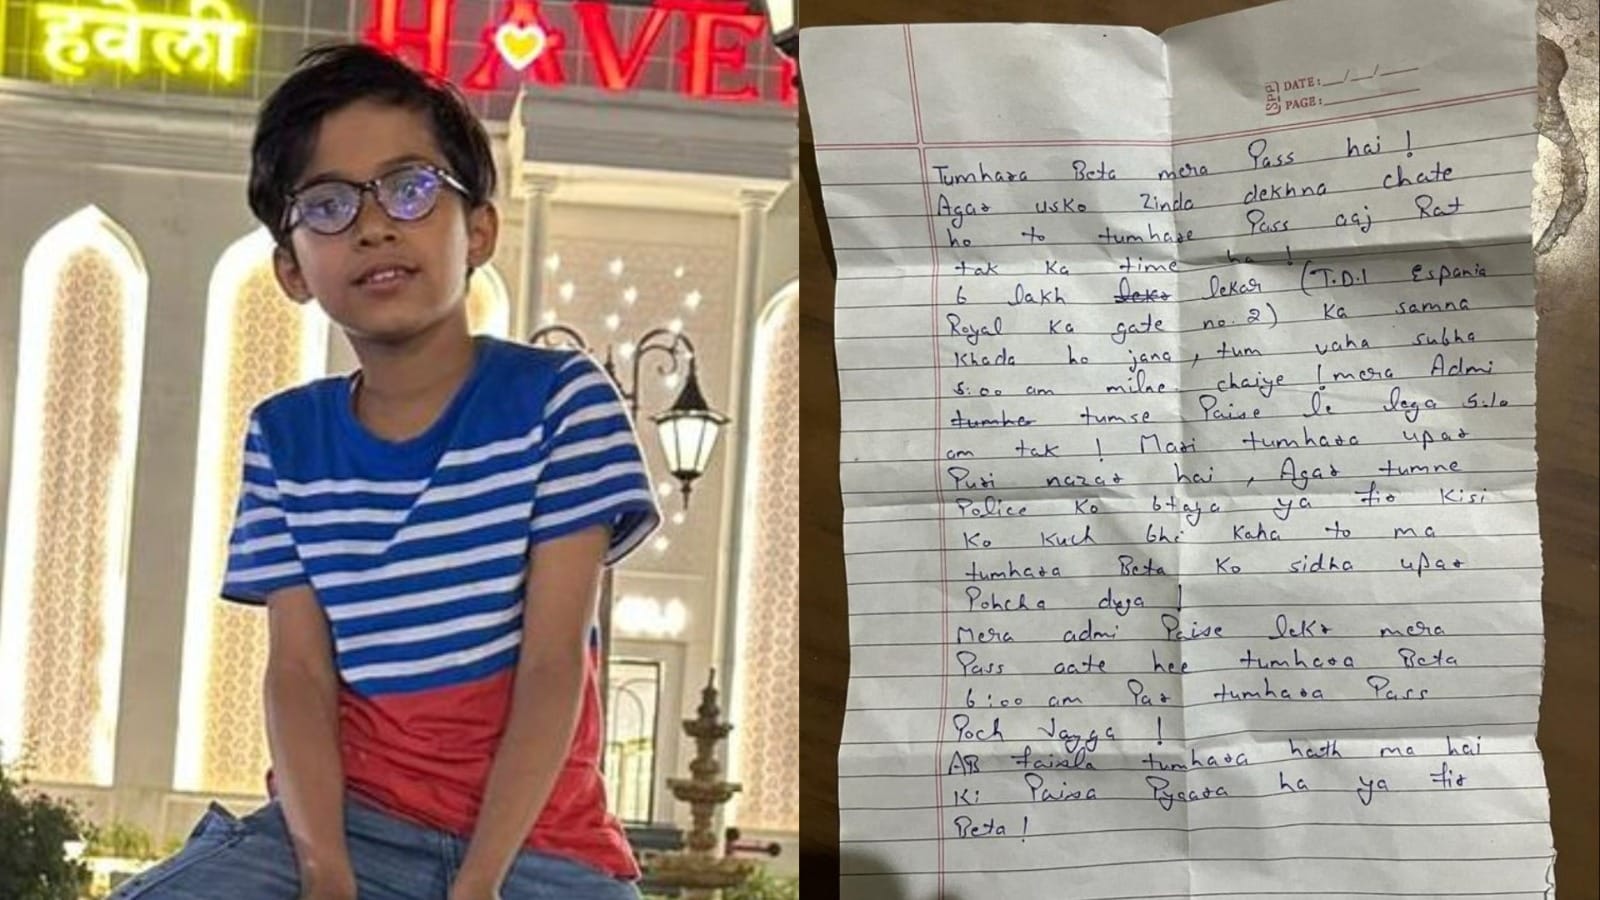 हवेली
HAVE
SPP DATE: __/__/__
PAGE:
Tumhara Beta mera Pass hai !
Agar usko Zinda dekhna chate
ho to tumhare Pass aaj Rat
tak ka time ha !
6 lakh lekar (T.D.I Espania
Royal Ka gate no. 2) Ka samna
Khada ho jana, tum vaha subha
5:00 am milne chaiye ! mera Admi
tumhe tumse Paise le lega 5:10
am tak ! Mari tumhara upar
Puri nazar hai, Agar tumne
Police Ko btaya ya fir Kisi
Ko Kuch bhi Kaha to ma
tumhara Beta Ko sidha upar
Pohcha dyga !
Mera admi Paise lekr mera
Pass aate hee tumhara Beta
6:00 am Par tumhara Pass
Poch Jayga !
AB faisla tumhara hath ma hai
Ki Paisa Pyaara ha ya fir
Beta !